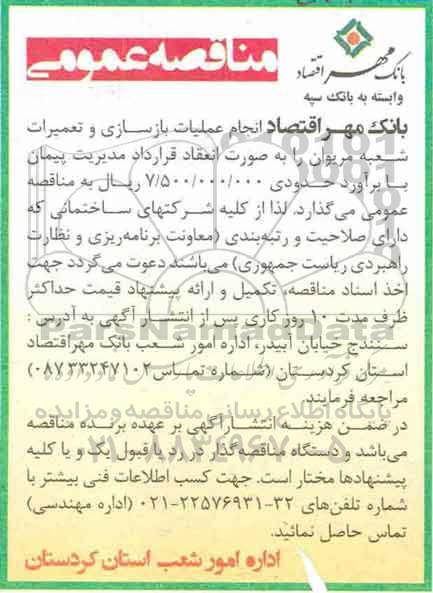 مناقصه عمومی
بانک مهر اقتصاد
وابسته به بانک سپه
بانک مهر اقتصاد انجام عملیات بازسازی و تعمیرات
شعبه مریوان را به صورت انعقاد قرارداد مدیریت پیمان
با برآورد حدودی ۷/۵۰۰/۰۰۰/۰۰۰ ریال به مناقصه
عمومی می‌گذارد. لذا از کلیه شرکتهای ساختمانی که
دارای صلاحیت و رتبه‌بندی (معاونت برنامه‌ریزی و نظارت
راهبردی ریاست جمهوری) می‌باشند دعوت می‌گردد جهت
اخذ اسناد مناقصه، تکمیل و ارائه پیشنهاد قیمت حداکثر
ظرف مدت ۱۰ روز کاری پس از انتشار آگهی به آدرس :
سنندج خیابان آبیدر، اداره امور شعب بانک مهر اقتصاد
استان کردستان (شماره تماس ۰۸۷۳۳۲۴۷۱۰۲)
مراجعه فرمایند.
در ضمن هزینه انتشار آگهی بر عهده برنده مناقصه
می‌باشد و دستگاه مناقصه‌گذار در رد یا قبول یک و یا کلیه
پیشنهادها مختار است. جهت کسب اطلاعات فنی بیشتر با
شماره تلفن‌های ۳۲-۲۲۵۷۶۹۳۱-۰۲۱ (اداره مهندسی)
تماس حاصل نمائید.
اداره امور شعب استان کردستان
ParsNamadData
پایگاه اطلاع رسانی مناقصه و مزایده